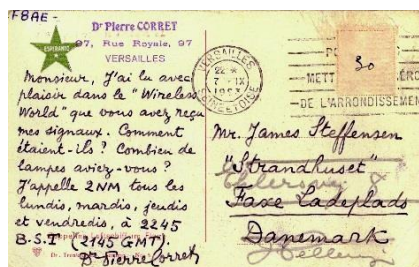 F8AE-
ESPERANTO
Dr Pierre CORRET
97, Rue Royale, 97
VERSAILLES
Monsieur, J'ai lu avec
plaisir dans le "Wireless
World" que vous avez reçu
mes signaux. Comment
étaient-ils? Combien de
lampes aviez-vous?
J'appelle 2NM tous les
lundis, mardis, jeudis
et vendredis, à 2245
B.S.T (2145 GMT).
Dr Pierre Corret
VERSAILLES
22 *
7 - IX
SEINE ET OISE
METT
DE L'ARRONDISSEMENT
30
Mr. James Steffensen
"Strandhuset"
Faxe Ladeplads
Danemark